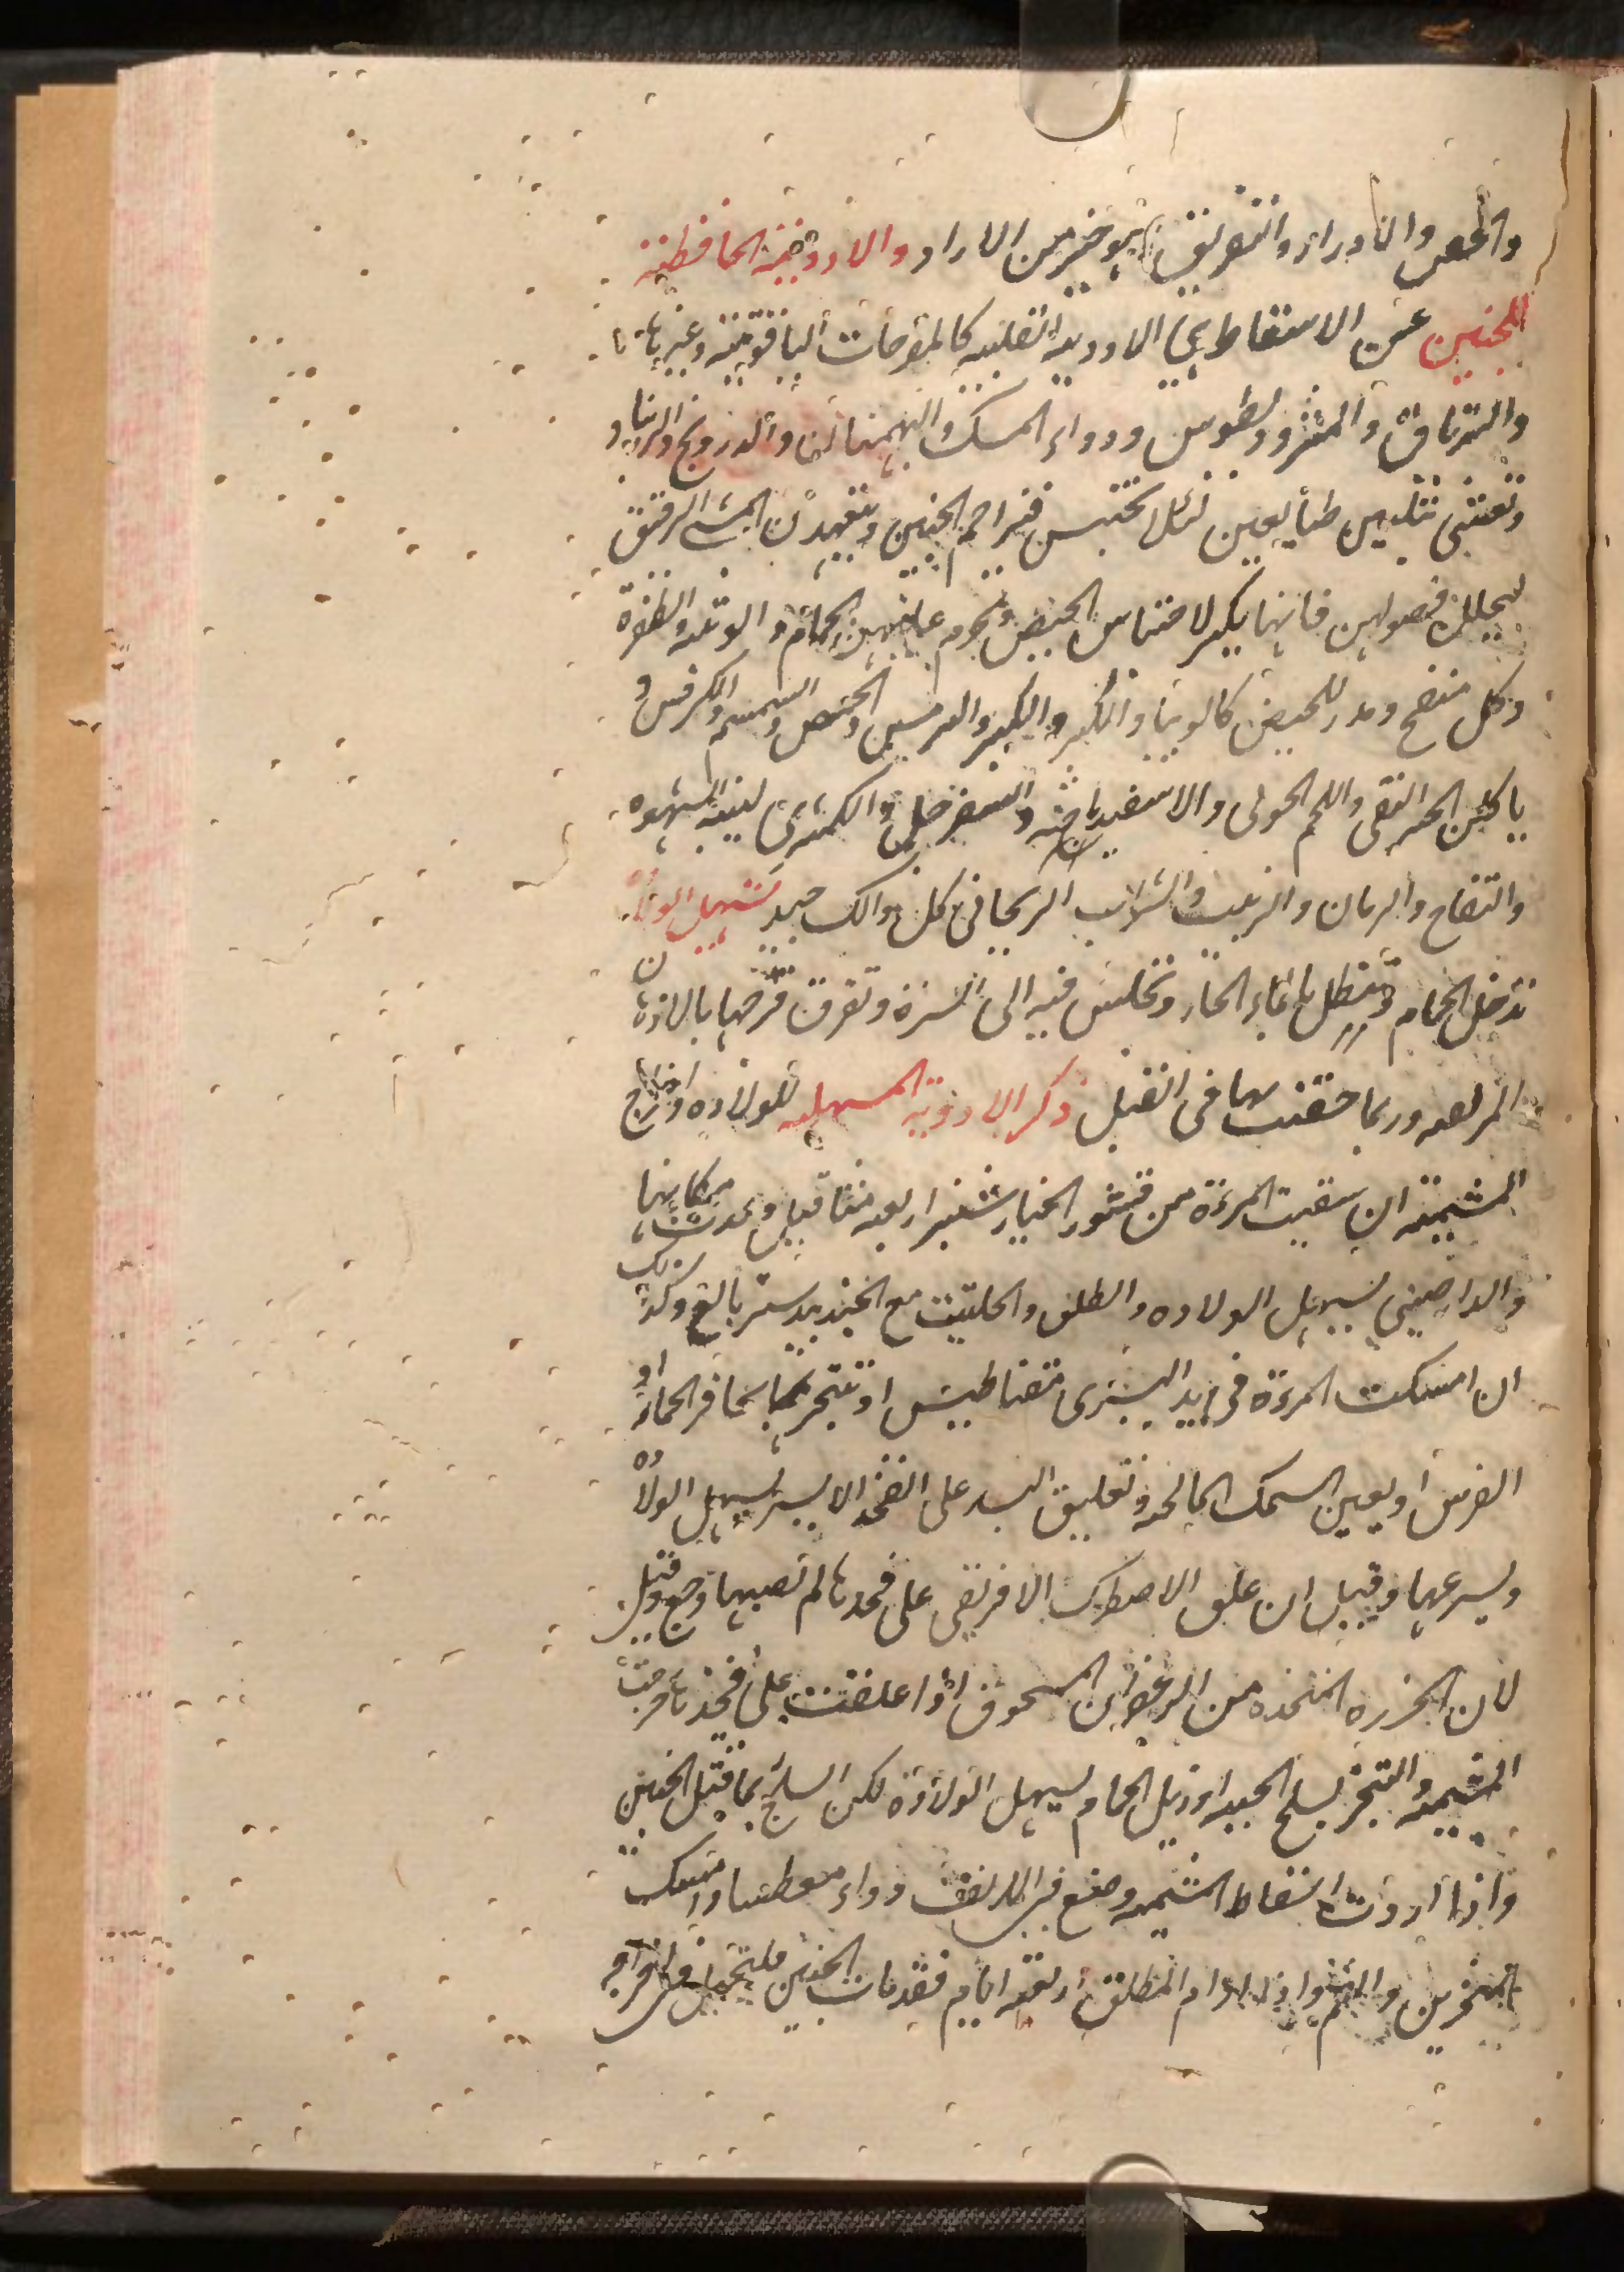 والحمص والادرار والتعريق يوخر من الادار والادوية الحافظة
للجنين عن الاسقاط هي الادوية القلبية كالمفرحات الياقوتية وغيرها
والترياق والمثروديطوس ودواء المسك والبهمنان والدرونج والزرنباد
وتعتنى بتليين طبايعهن لئلا يحتبس فيزاحم الجنين ويتعهدن المشى الرقيق
ليحلل فضولهن فانها يكثر لاحتباس الحيض ويحرم عليهن الحمام والوثبة والطفرة
وكل منفخ ومدر للحيض كاللوبيا والكبر والترمس والحمص والسمسم والكرفس و
ياكلن الخبز النقى واللحم الحولى والاسفيدباجة والسفرجل والكمثرى لينبه الشهوه
والتفاح والرمان والزبيب والشراب الريحانى كل ذالك جيد تسهيل الولاده
تدخل الحمام وتنطل بالماء الحار وتجلس فيه الى السرة وتعرق فرجها بالادهان
المزلقه وربما حقنت بها فى القبل ذكر الادوية المسهله للولاده واخراج
المشيمة ان سقيت المرءة من قشور الخيارشنبر اربعه مثاقيل ولدت مكانها
والدارصينى يسهل الولاده والطلق والحلتيت مع الجندبيدستر بالغ وكذلك
ان امسكت المرءة فى يد اليسرى مقناطيس او تتبخر بحافر الحمار او
الفرس او بعين السمك المالحه وتعليق البسد على الفخذ الايسر يسهل الولاده
ويسرعها وقيل ان علق الاصطرك الافريقى على فخدها لم تصبها وجع وقيل
لان الخرزه المتخذه من الزعفران المسحوق اذا علقت على فخذها خرجت
المشيمه والتبخر بسلخ الحيه او زبل الحمام يسهل الولادة لكن السلخ ربما قتل الجنين
واذا اردت اسقاط المشيمه وضع فى الانف دواء معطسا وامسك
المنخرين والفم واذا دام الطلق اربعة ايام فقد مات الجنين فليتحيل فى اخراجه